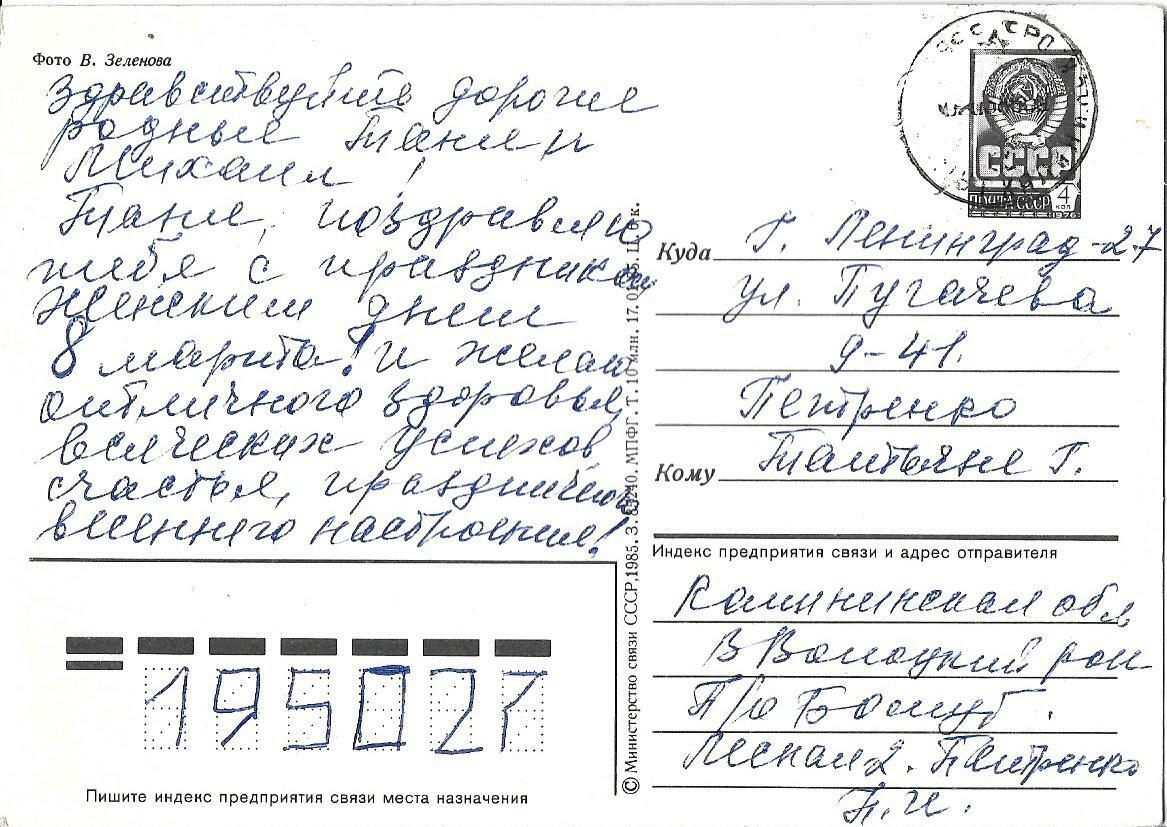 Фото В. Зеленова
Здравствуйте дорогие
родные Таня и
Михаил!
Таня, поздравляю
тебя с праздником
Женским днем
8 марта! и желаю
отличного здоровья,
всяческих успехов
счастья, праздничного
весеннего настроения!
СССР
ПОЧТА СССР 4 коп
1976
Куда г. Ленинград-27
ул. Пугачева
9-41.
Петренко
Кому Татьяне Г.
Индекс предприятия связи и адрес отправителя
Калининская обл
В Волоцкий рон
П/о
Лесная 2. Петренко
Н. И.
© Министерство связи СССР, 1985. З. 85240. МПФГ. Т. 10 млн. 17.01.85. Ц. 6 к.
195027
Пишите индекс предприятия связи места назначения